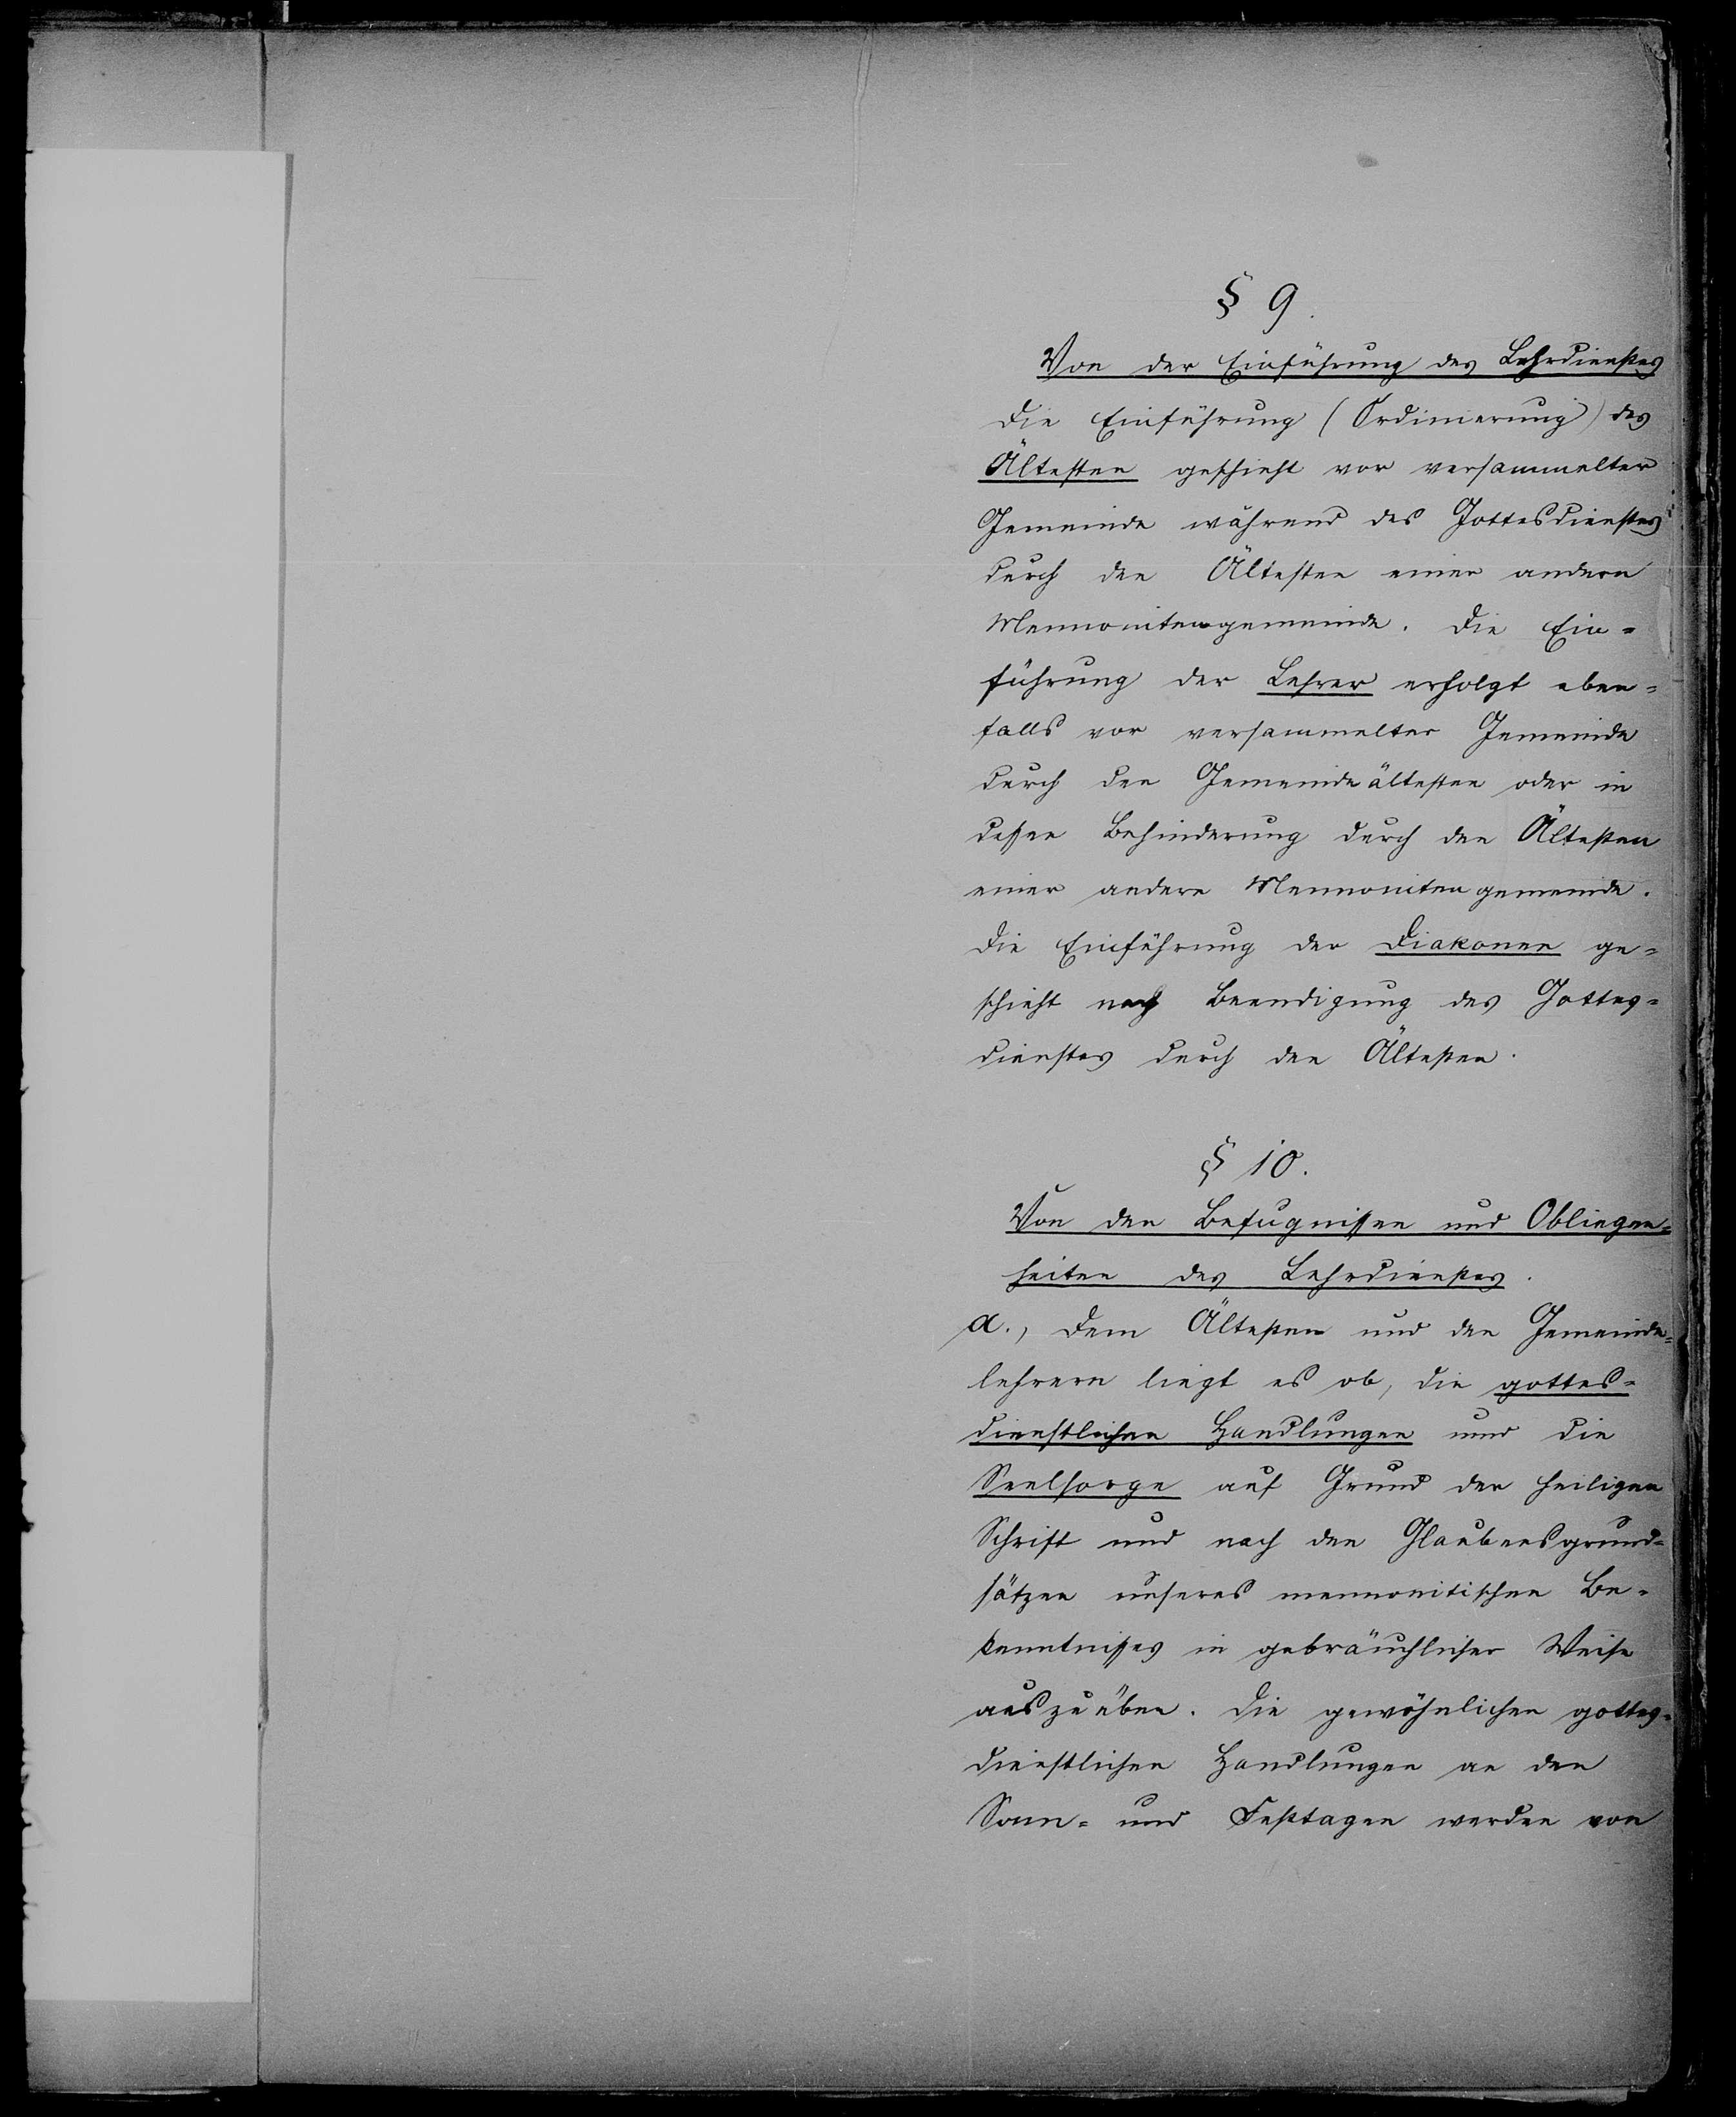 § 9.
Von der Einführung des Lehrdienstes
Die Einführung (Ordinierung) des
Ältesten geschieht vor versammelter
Gemeinde während des Gottesdienstes
durch den Ältesten einer andern
Mennonitengemeinde. Die Ein=
führung der Lehrer erfolgt eben=
falls vor versammelter Gemeinde
durch den Gemeindeältesten oder in
dessen Behinderung durch den Ältesten
einer andern Mennonitengemeinde.
Die Einführung der Diakonen ge=
schieht nach Beendigung des Gottes=
dienstes durch den Ältesten.
§ 10.
Von den Befugnissen und Obliegen=
heiten des Lehrdienstes.
a., Dem Ältesten und den Gemeinde=
lehrern liegt es ob, die gottes=
dienstlichen Handlungen und die
Seelsorge auf Grund der heiligen
Schrift und nach den Glaubensgrund=
sätzen unseres mennonitischen Be=
kenntnisses in gebräuchlicher Weise
auszuüben. Die gewöhnlichen gottes=
dienstlichen Handlungen an den
Sonn= und Festtagen werden von